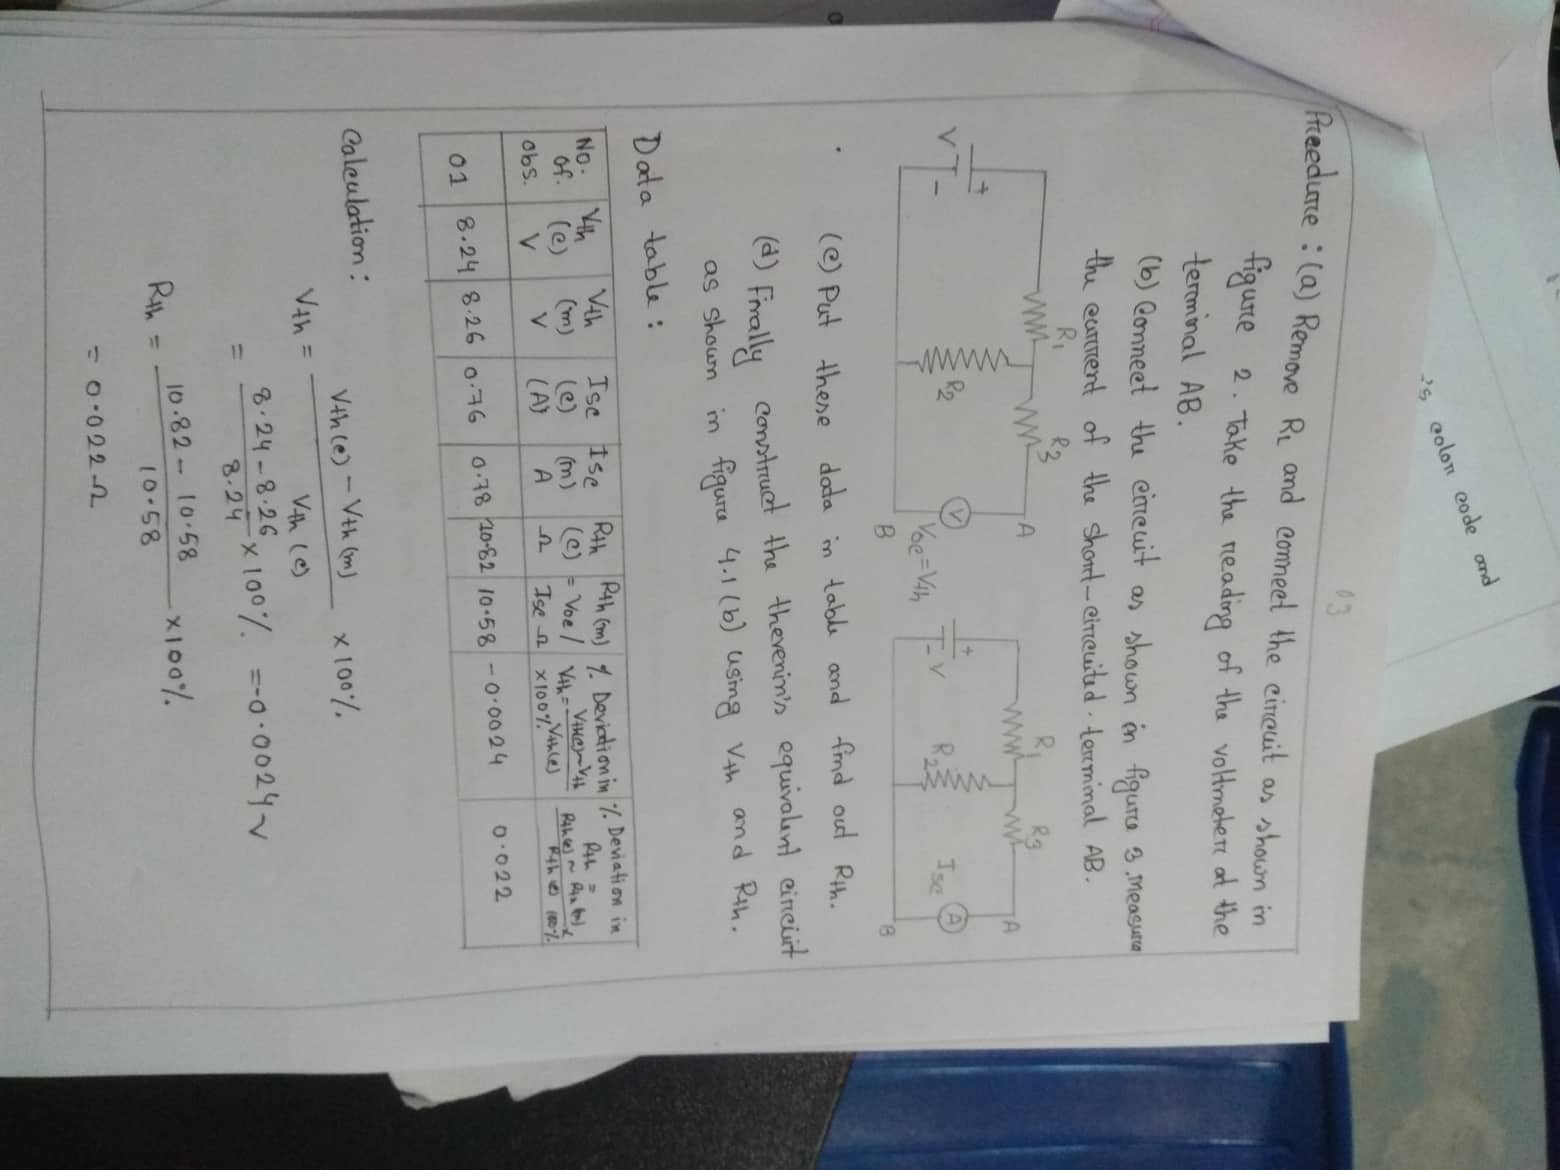 's colour code and
03
Procedure : (a) Remove RL and connect the circuit as shown in
figure 2. Take the reading of the voltmeter at the
terminal AB.
(b) Connect the circuit as shown in figure 3. measure
the current of the short-circuited terminal AB.
V
+
-
R1
R2
R3
A
V
B
Voc=Vth
+
-
V
R1
R2
R3
A
Isc
A
B
(c) Put these data in table and find out Rth.
(d) Finally construct the thevenin's equivalent circuit
as shown in figure 4.1(b) using Vth and Rth.
Data table :
No. of. obs.
Vth (c) V
Vth (m) V
Isc (c) (A)
Isc (m) A
Rth (c) Ω
Rth(m) = Voc/ Isc Ω
% Deviation in Vth = Vth(c)~Vth Vth(c) ×100%
% Deviation in Rth = Rth(c) ~ Rth(m) Rth(c) × 100%
01 8.24 8.26 0.76 0.78 10.82 10.58 -0.0024 0.022
Calculation :
Vth = Vth(c) - Vth(m) / Vth(c) × 100%
= 8.24 - 8.26 / 8.24 × 100% = -0.0024 V
Rth = 10.82 - 10.58 / 10.58 × 100%
= 0.022 Ω